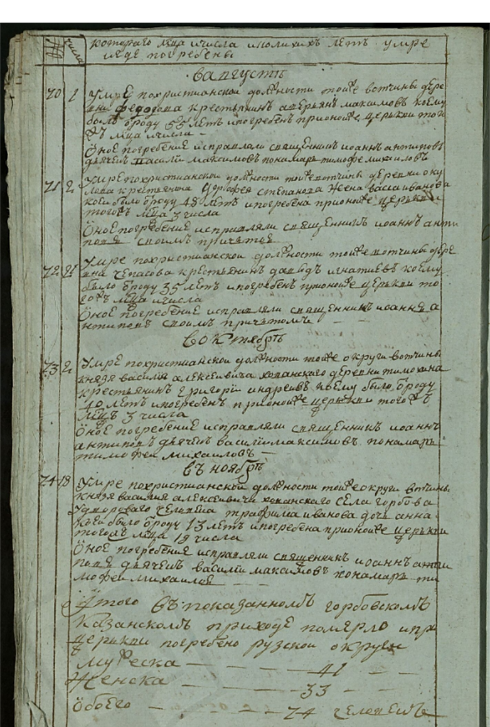 котораго мца ичисла иколикихъ летъ умре
игде погребены
вавгусте
70 1 Умре похристианской должности тойже вотчины дере
вни Федорова крестьянинъ Максимовъ коему
было отроду 55 летъ ипогребенъ прионой же церькви того
ж мца числа
Оное погребение исправляли священникъ иоаннъ антиповъ
дьячекъ василей максимовъ понамарь тимофей михаиловъ
71 2 Умре похристианской должности тойже вотчины деревни оку
лова крестьянина Степанова жена василиса иванова
коей было отроду 48 летъ ипогребена прионой же церькви
тогожъ мца 3 числа
Оное погребение исправляли священникъ иоаннъ анти
повъ своимъ причетомъ
72 21 Умре похристианской должности тойже вотчины дере
вни крестьянинъ давыдъ игнатиевъ коему
было отроду 35 летъ ипогребенъ прионой же церькви то
гожъ мца ичисла
Оное погребение исправляли священникъ иоаннъ а
нтиповъ своимъ причетомъ
Вокктябре
73 2 Умре похристианской должности тойже округи вотчины
князя василия алексеевича хованскаго деревни
крестьянинъ григорий андреевъ коему было отроду
40 летъ ипогребенъ прионой же церькви тогожъ
мца 3 числа
Оное погребение исправляли священникъ иоаннъ
антиповъ дьячекъ василей максимовъ понамарь
тимофей михаиловъ
въ ноябре
74 18 Умре похристианской должности тойже округи вотчины
князя василия алексеевича хованскаго села горбова
удвороваго человека трафима иванова дочь анна
коей было отроду 13 летъ ипогребена прионой же церькви
тогожъ мца 19 числа
Оное погребение исправляли священникъ иоаннъ анти
повъ дьячекъ василей максимовъ понамарь ти
мофей михаиловъ
Итого въ показанномъ горбовскомъ
казанскомъ приходе померло ипри
церькви погребено рузской округи
Мужеска 41
Женска 33
Обоего 74 человекъ